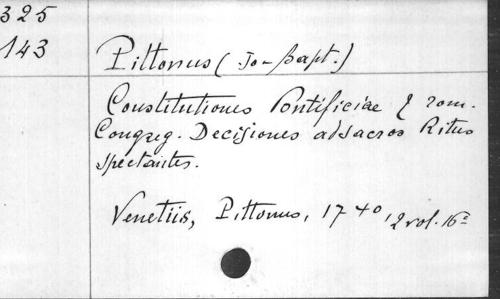 325
143
Pittonus (Jo-Bapt.)
Constitutiones Pontificiae & rom.
Congreg. Decisiones ad sacros Ritus
spectantes.
Venetiis, Pittonus, 1740, 2 vol. 16º